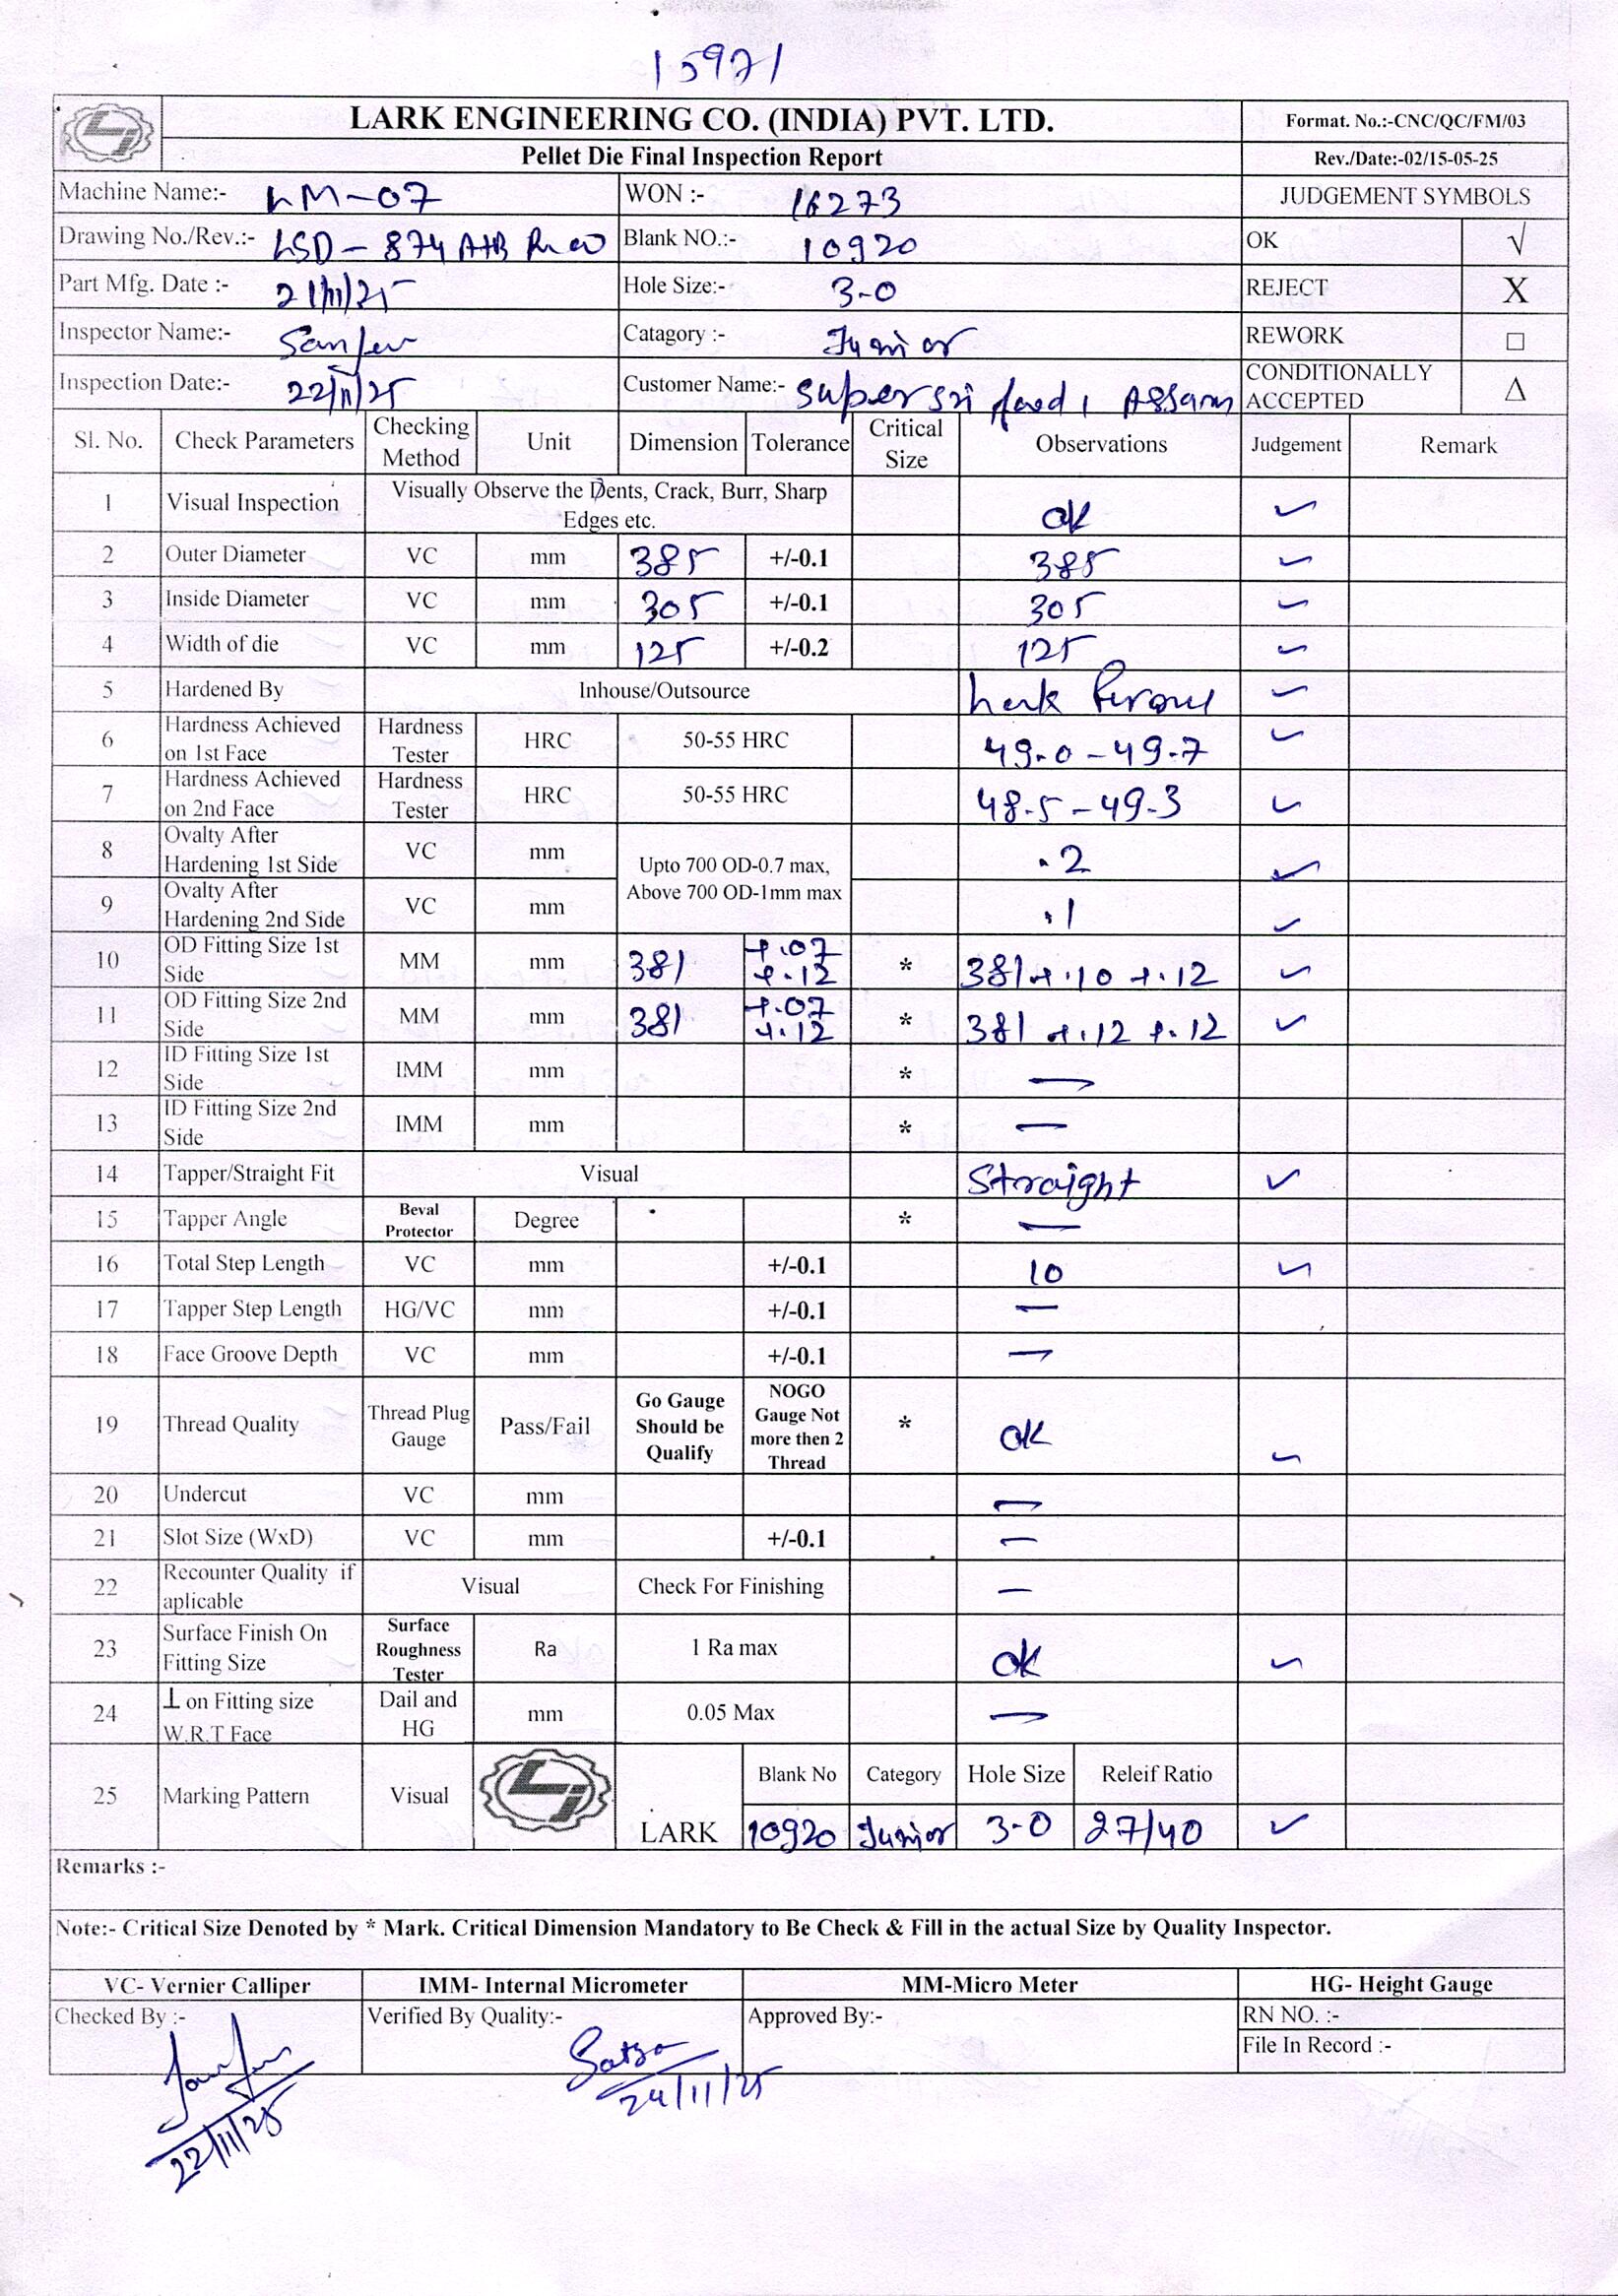 15971
LARK ENGINEERING CO. (INDIA) PVT. LTD.
Format. No.:-CNC/QC/FM/03
Pellet Die Final Inspection Report
Rev./Date:-02/15-05-25
Machine Name:- LM-07 WON :- 16273 JUDGEMENT SYMBOLS
Drawing No./Rev.:- LSD-874 Blank NO.:- 10920 OK √
Part Mfg. Date :- 21/11/25 Hole Size:- 3-0 REJECT X
Inspector Name:- Catagory :- Junior REWORK □
Inspection Date:- 22/11/25 Customer Name:- Super sri feed, Assam CONDITIONALLY ACCEPTED Δ
Sl. No. Check Parameters Checking Method Unit Dimension Tolerance Critical Size Observations Judgement Remark
1 Visual Inspection Visually Observe the Dents, Crack, Burr, Sharp Edges etc. ok ✓
2 Outer Diameter VC mm 385 +/-0.1 385 ✓
3 Inside Diameter VC mm 305 +/-0.1 305 ✓
4 Width of die VC mm 125 +/-0.2 125 ✓
5 Hardened By Inhouse/Outsource ✓
6 Hardness Achieved on 1st Face Hardness Tester HRC 50-55 HRC 49.0-49.7 ✓
7 Hardness Achieved on 2nd Face Hardness Tester HRC 50-55 HRC 48.5-49.3 ✓
8 Ovalty After Hardening 1st Side VC mm Upto 700 OD-0.7 max, Above 700 OD-1mm max .2 ✓
9 Ovalty After Hardening 2nd Side VC mm .1 ✓
10 OD Fitting Size 1st Side MM mm 381 +.07 +.12 * 381 +.10 +.12 ✓
11 OD Fitting Size 2nd Side MM mm 381 +.07 +.12 * 381 +.12 +.12 ✓
12 ID Fitting Size 1st Side IMM mm * —
13 ID Fitting Size 2nd Side IMM mm * —
14 Tapper/Straight Fit Visual Straight ✓
15 Tapper Angle Beval Protector Degree * —
16 Total Step Length VC mm +/-0.1 10 ✓
17 Tapper Step Length HG/VC mm +/-0.1 —
18 Face Groove Depth VC mm +/-0.1 —
19 Thread Quality Thread Plug Gauge Pass/Fail Go Gauge Should be Qualify NOGO Gauge Not more then 2 Thread * ok ✓
20 Undercut VC mm —
21 Slot Size (WxD) VC mm +/-0.1 —
22 Recounter Quality if aplicable Visual Check For Finishing —
23 Surface Finish On Fitting Size Surface Roughness Tester Ra 1 Ra max ok ✓
24 ⊥ on Fitting size W.R.T Face Dail and HG mm 0.05 Max —
25 Marking Pattern Visual LARK Blank No Category Hole Size Releif Ratio
10920 Junior 3-0 27/40 ✓
Remarks :-
Note:- Critical Size Denoted by * Mark. Critical Dimension Mandatory to Be Check & Fill in the actual Size by Quality Inspector.
VC- Vernier Calliper IMM- Internal Micrometer MM-Micro Meter HG- Height Gauge
Checked By :- Verified By Quality:- Approved By:- RN NO. :-
File In Record :-
24/11/25
22/11/25